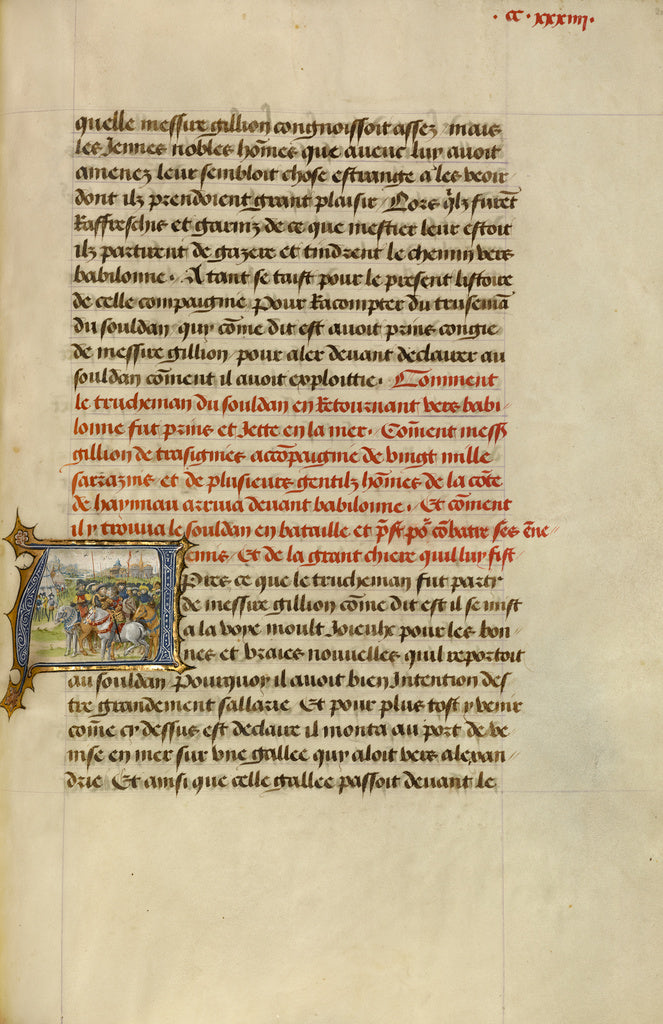 · CC · xxxiiij ·
quelle messire gillion congnoissoit assez mais
les Jennes nobles hom̄es que auecuc luy auoit
amenez leur sembloit chose estrange a les veoir
dont ilz prendoient grant plaisir / Lors q̄lz furēt
Raffreschis et garniz de ce que mestier leur estoit
ilz partirent de gazere et tindrent le chemin vers
babilonne · A tant se taist pour le present listoire
de celle compaignie Pour Racompter du truseman̄
du souldan quy com̄e dit est auoit prins congie
de messire gillion pour aler deuant declairer au
souldan com̄ent il auoit exploittie · Comment
le trucheman du souldan en Retournant vers babi-
lonne fut prins et Jette en la mer · Com̄ent mess̄
gillion de trasignies accōpaignie de vingt mille
sarrazins et de plusieurs gentilz hom̄es de la cōte
de haynnau arriua deuant babilonne · Et com̄ent
il y trouua le souldan en bataille et p̄st po᷑ cōbatre ses ēne-
emis / Et de la grant chiere quil luy fist
Apres ce que le trucheman fut party
de messire gillion com̄e dit est il se mist
a la voye moult Joieulx pour les bon-
nes et vraies nouuelles quil reportoit
au souldan Pourquoy il auoit bien Intention des
tre grandement sallarie Et pour plus tost y venir
com̄e cy dessus est declaire il monta au port de ve
nise en mer sur vne gallee quy aloit vers alexan-
drie Et ainsi que celle gallee passoit deuant le